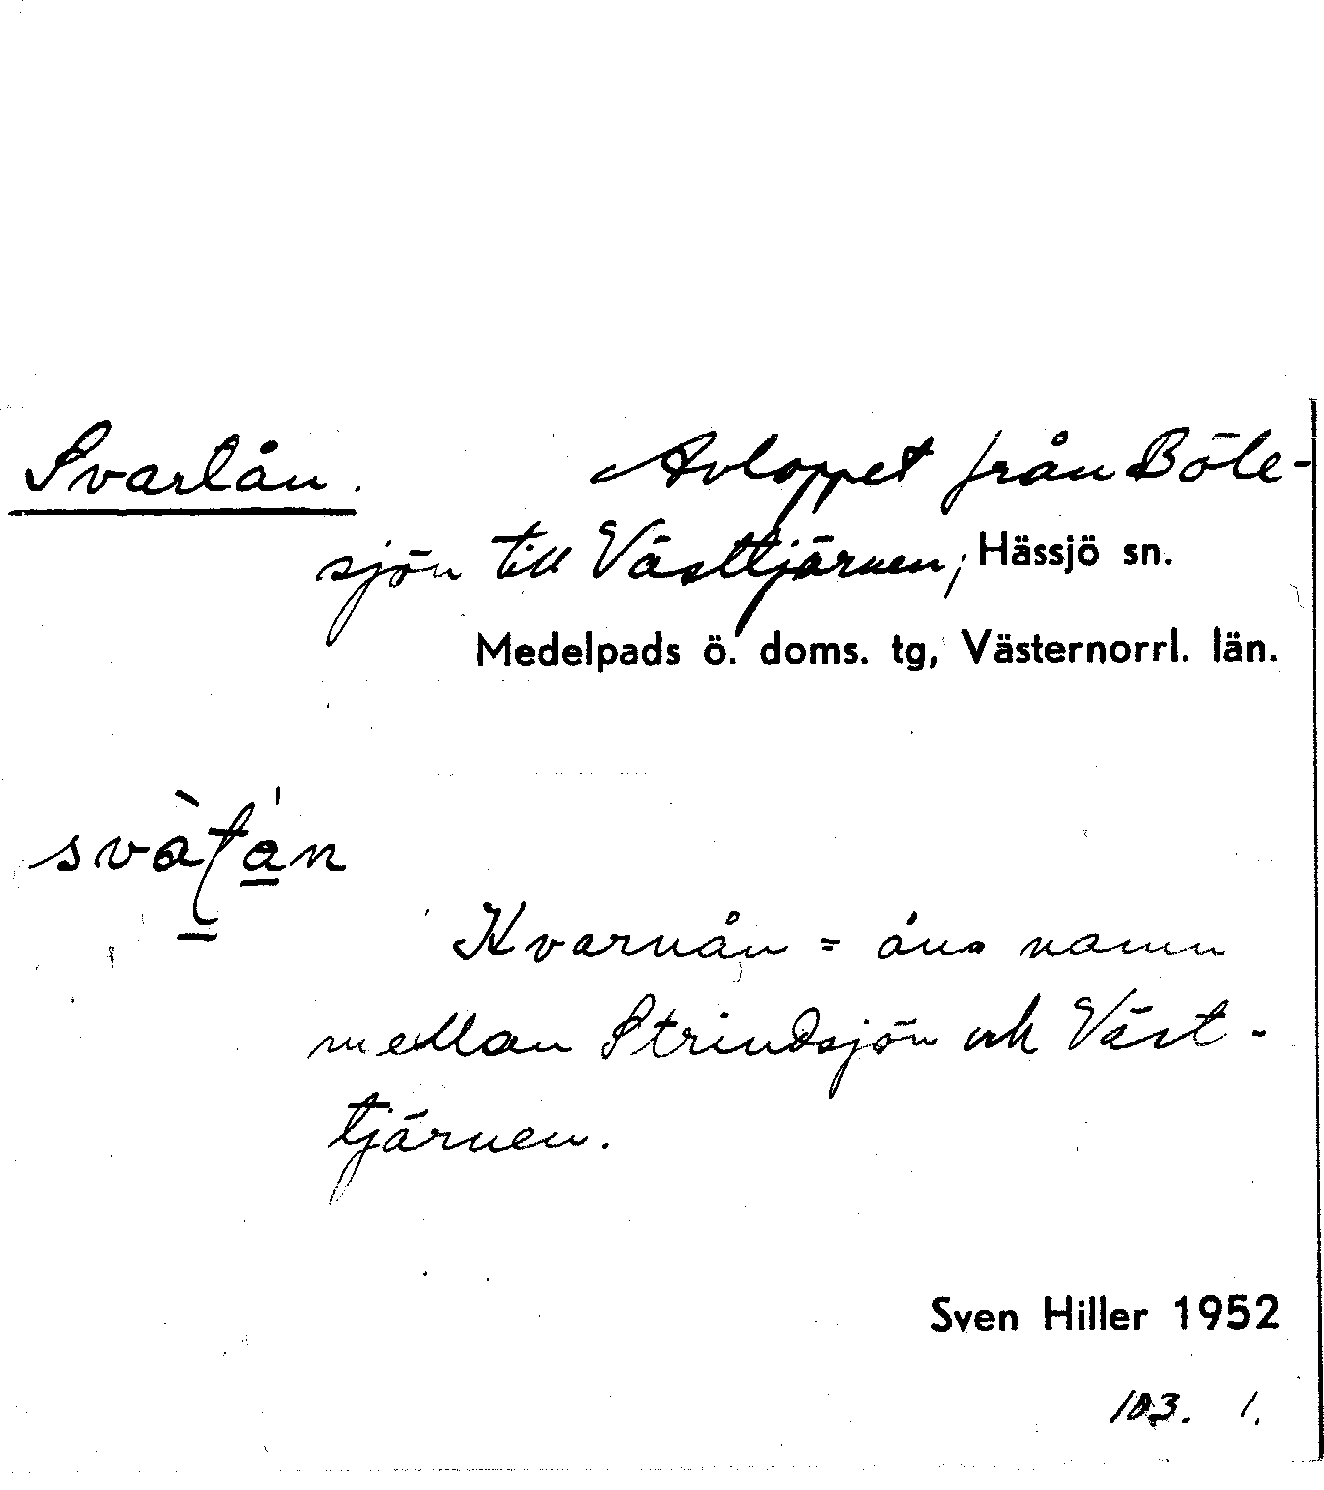 Svartån. Avloppet från Böle-
sjön till Västtjärnen, Hässjö sn.
Medelpads ö. doms. tg, Västernorrl. län.
Kvarnån = åns namn
mellan Strindsjön och Väst-
tjärnen.
Sven Hiller 1952
103. 1.